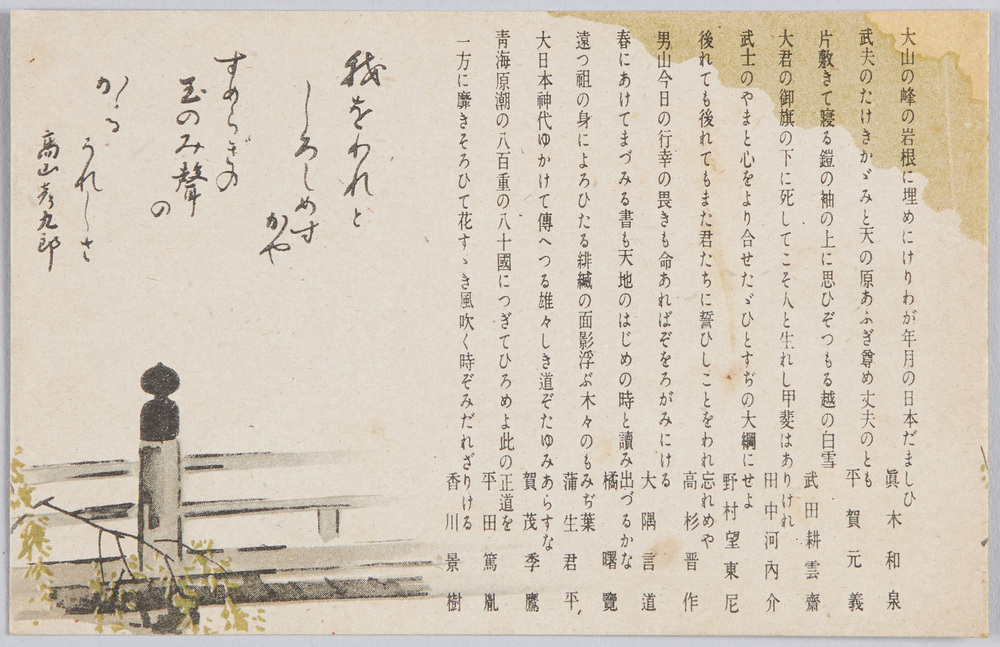 大山の峰の岩根に埋めにけりわが年月の日本だましひ
眞木和泉
武夫のたけきかゞみと天の原あふぎ尊め丈夫のとも
平賀元義
片敷きて寝る鎧の袖の上に思ひぞつもる越の白雪
武田耕雲齋
大君の御旗の下に死してこそ人と生れし甲斐はありけれ
田中河內介
武士のやまと心をより合せたゞひとすぢの大綱にせよ
野村望東尼
後れても後れてもまた君たちに誓ひしことをわれ忘れめや
高杉晋作
男山今日の行幸の畏きも命あればぞをろがみにける
大隈言道
春にあけてまづみる書も天地のはじめの時と讀み出づるかな
橘曙覽
遠つ祖の身によろひたる緋縅の面影浮ぶ木々のもみぢ葉
蒲生君平
大日本神代ゆかけて傳へつる雄々しき道ぞたゆみあらすな
賀茂季鷹
靑海原潮の八百重の八十國につぎてひろめよ此の正道を
平田篤胤
一方に靡きそろひて花すゝき風吹く時ぞみだれざりける
香川景樹
我をわれと
しろしめす
かや
すめらぎの
玉のみ聲
の
かゝる
うれしさ
高山彦九郎